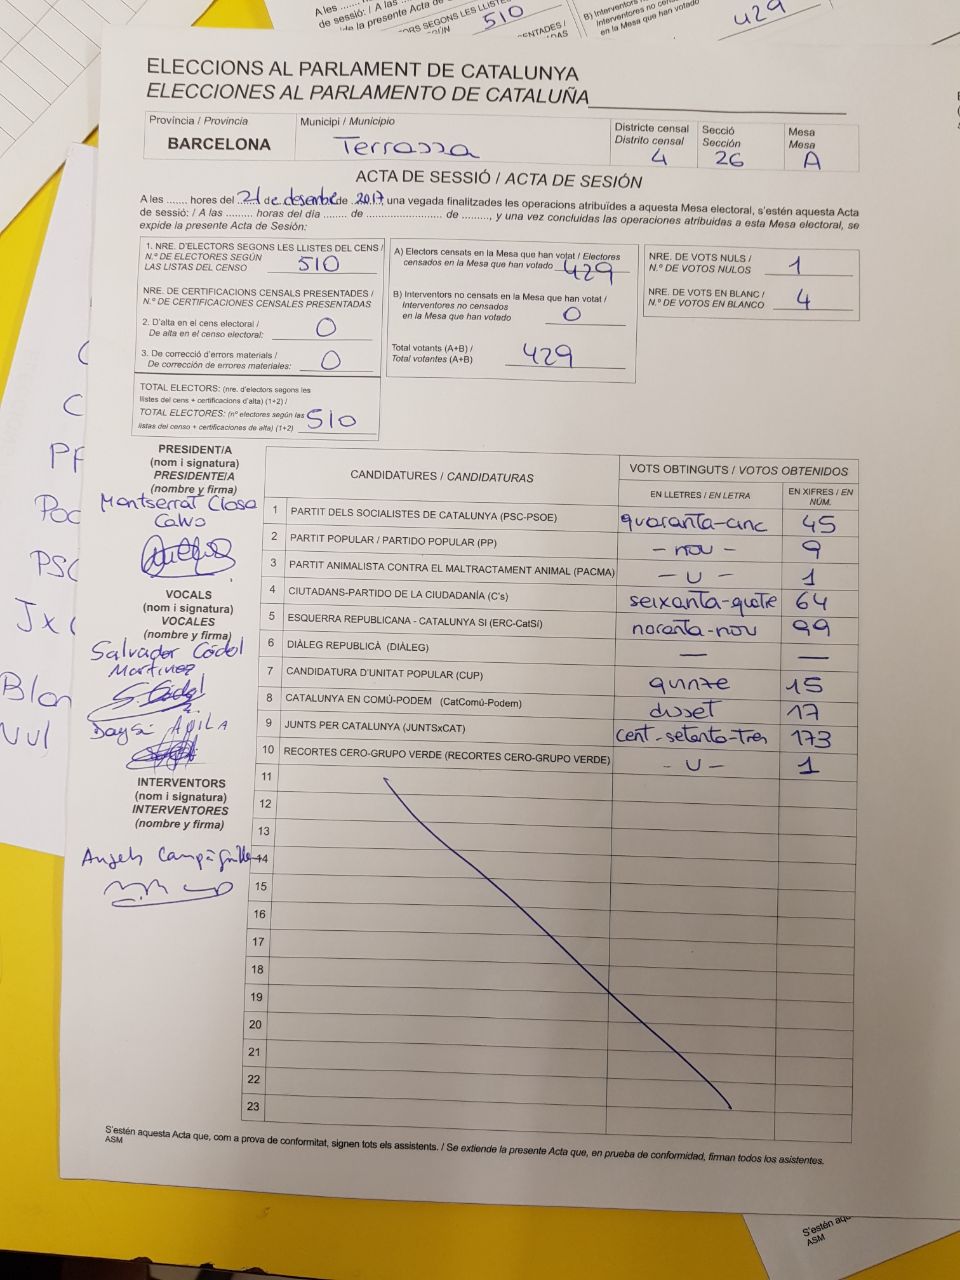 ELECCIONS AL PARLAMENT DE CATALUNYA
ELECCIONES AL PARLAMENTO DE CATALUÑA
Província / Provincia
BARCELONA
Municipi / Municipio
Terrassa
Districte censal
Distrito censal
4
Secció
Sección
26
Mesa
Mesa
A
ACTA DE SESSIÓ / ACTA DE SESIÓN
A les ....... hores del 21 de desembre de 2017 una vegada finalitzades les operacions atribuïdes a aquesta Mesa electoral, s'estén aquesta Acta
de sessió: / A las ......... horas del día ....... de ...................... de ........., y una vez concluidas las operaciones atribuidas a esta Mesa electoral, se
expide la presente Acta de Sesión:
1. NRE. D'ELECTORS SEGONS LES LLISTES DEL CENS /
N.º DE ELECTORES SEGÚN
LAS LISTAS DEL CENSO
510
NRE. DE CERTIFICACIONS CENSALS PRESENTADES /
N.º DE CERTIFICACIONES CENSALES PRESENTADAS
2. D'alta en el cens electoral /
De alta en el censo electoral:
0
3. De correcció d'errors materials /
De corrección de errores materiales:
0
TOTAL ELECTORS: (nre. d'electors segons les
llistes del cens + certificacions d'alta) (1+2) /
TOTAL ELECTORES: (nº electores según las
listas del censo + certificaciones de alta) (1+2)
510
A) Electors censats en la Mesa que han votat / Electores
censados en la Mesa que han votado
429
B) Interventors no censats en la Mesa que han votat /
Interventores no censados
en la Mesa que han votado
0
Total votants (A+B) /
Total votantes (A+B)
429
NRE. DE VOTS NULS /
N.º DE VOTOS NULOS
1
NRE. DE VOTS EN BLANC /
N.º DE VOTOS EN BLANCO
4
PRESIDENT/A
(nom i signatura)
PRESIDENTE/A
(nombre y firma)
Montserrat Closa
Calvo
VOCALS
(nom i signatura)
VOCALES
(nombre y firma)
Salvador Códol
Martinez
S. Códol
Daysi AVILA
INTERVENTORS
(nom i signatura)
INTERVENTORES
(nombre y firma)
Angels
CANDIDATURES / CANDIDATURAS
VOTS OBTINGUTS / VOTOS OBTENIDOS
EN LLETRES / EN LETRA
EN XIFRES / EN
NÚM.
1 PARTIT DELS SOCIALISTES DE CATALUNYA (PSC-PSOE) quaranta-cinc 45
2 PARTIT POPULAR / PARTIDO POPULAR (PP) - nou - 9
3 PARTIT ANIMALISTA CONTRA EL MALTRACTAMENT ANIMAL (PACMA) - U - 1
4 CIUTADANS-PARTIDO DE LA CIUDADANÍA (C's) seixanta-quatre 64
5 ESQUERRA REPUBLICANA - CATALUNYA SI (ERC-CatSí) noranta-nou 99
6 DIÀLEG REPUBLICÀ (DIÀLEG) — —
7 CANDIDATURA D'UNITAT POPULAR (CUP) quinze 15
8 CATALUNYA EN COMÚ-PODEM (CatComú-Podem) disset 17
9 JUNTS PER CATALUNYA (JUNTSxCAT) cent-setanta-tres 173
10 RECORTES CERO-GRUPO VERDE (RECORTES CERO-GRUPO VERDE) - U - 1
11
12
13
14
15
16
17
18
19
20
21
22
23
S'estén aquesta Acta que, com a prova de conformitat, signen tots els assistents. / Se extiende la presente Acta que, en prueba de conformidad, firman todos los asistentes.
ASM
S'estén aqu
ASM
510
429
PSC
Nul